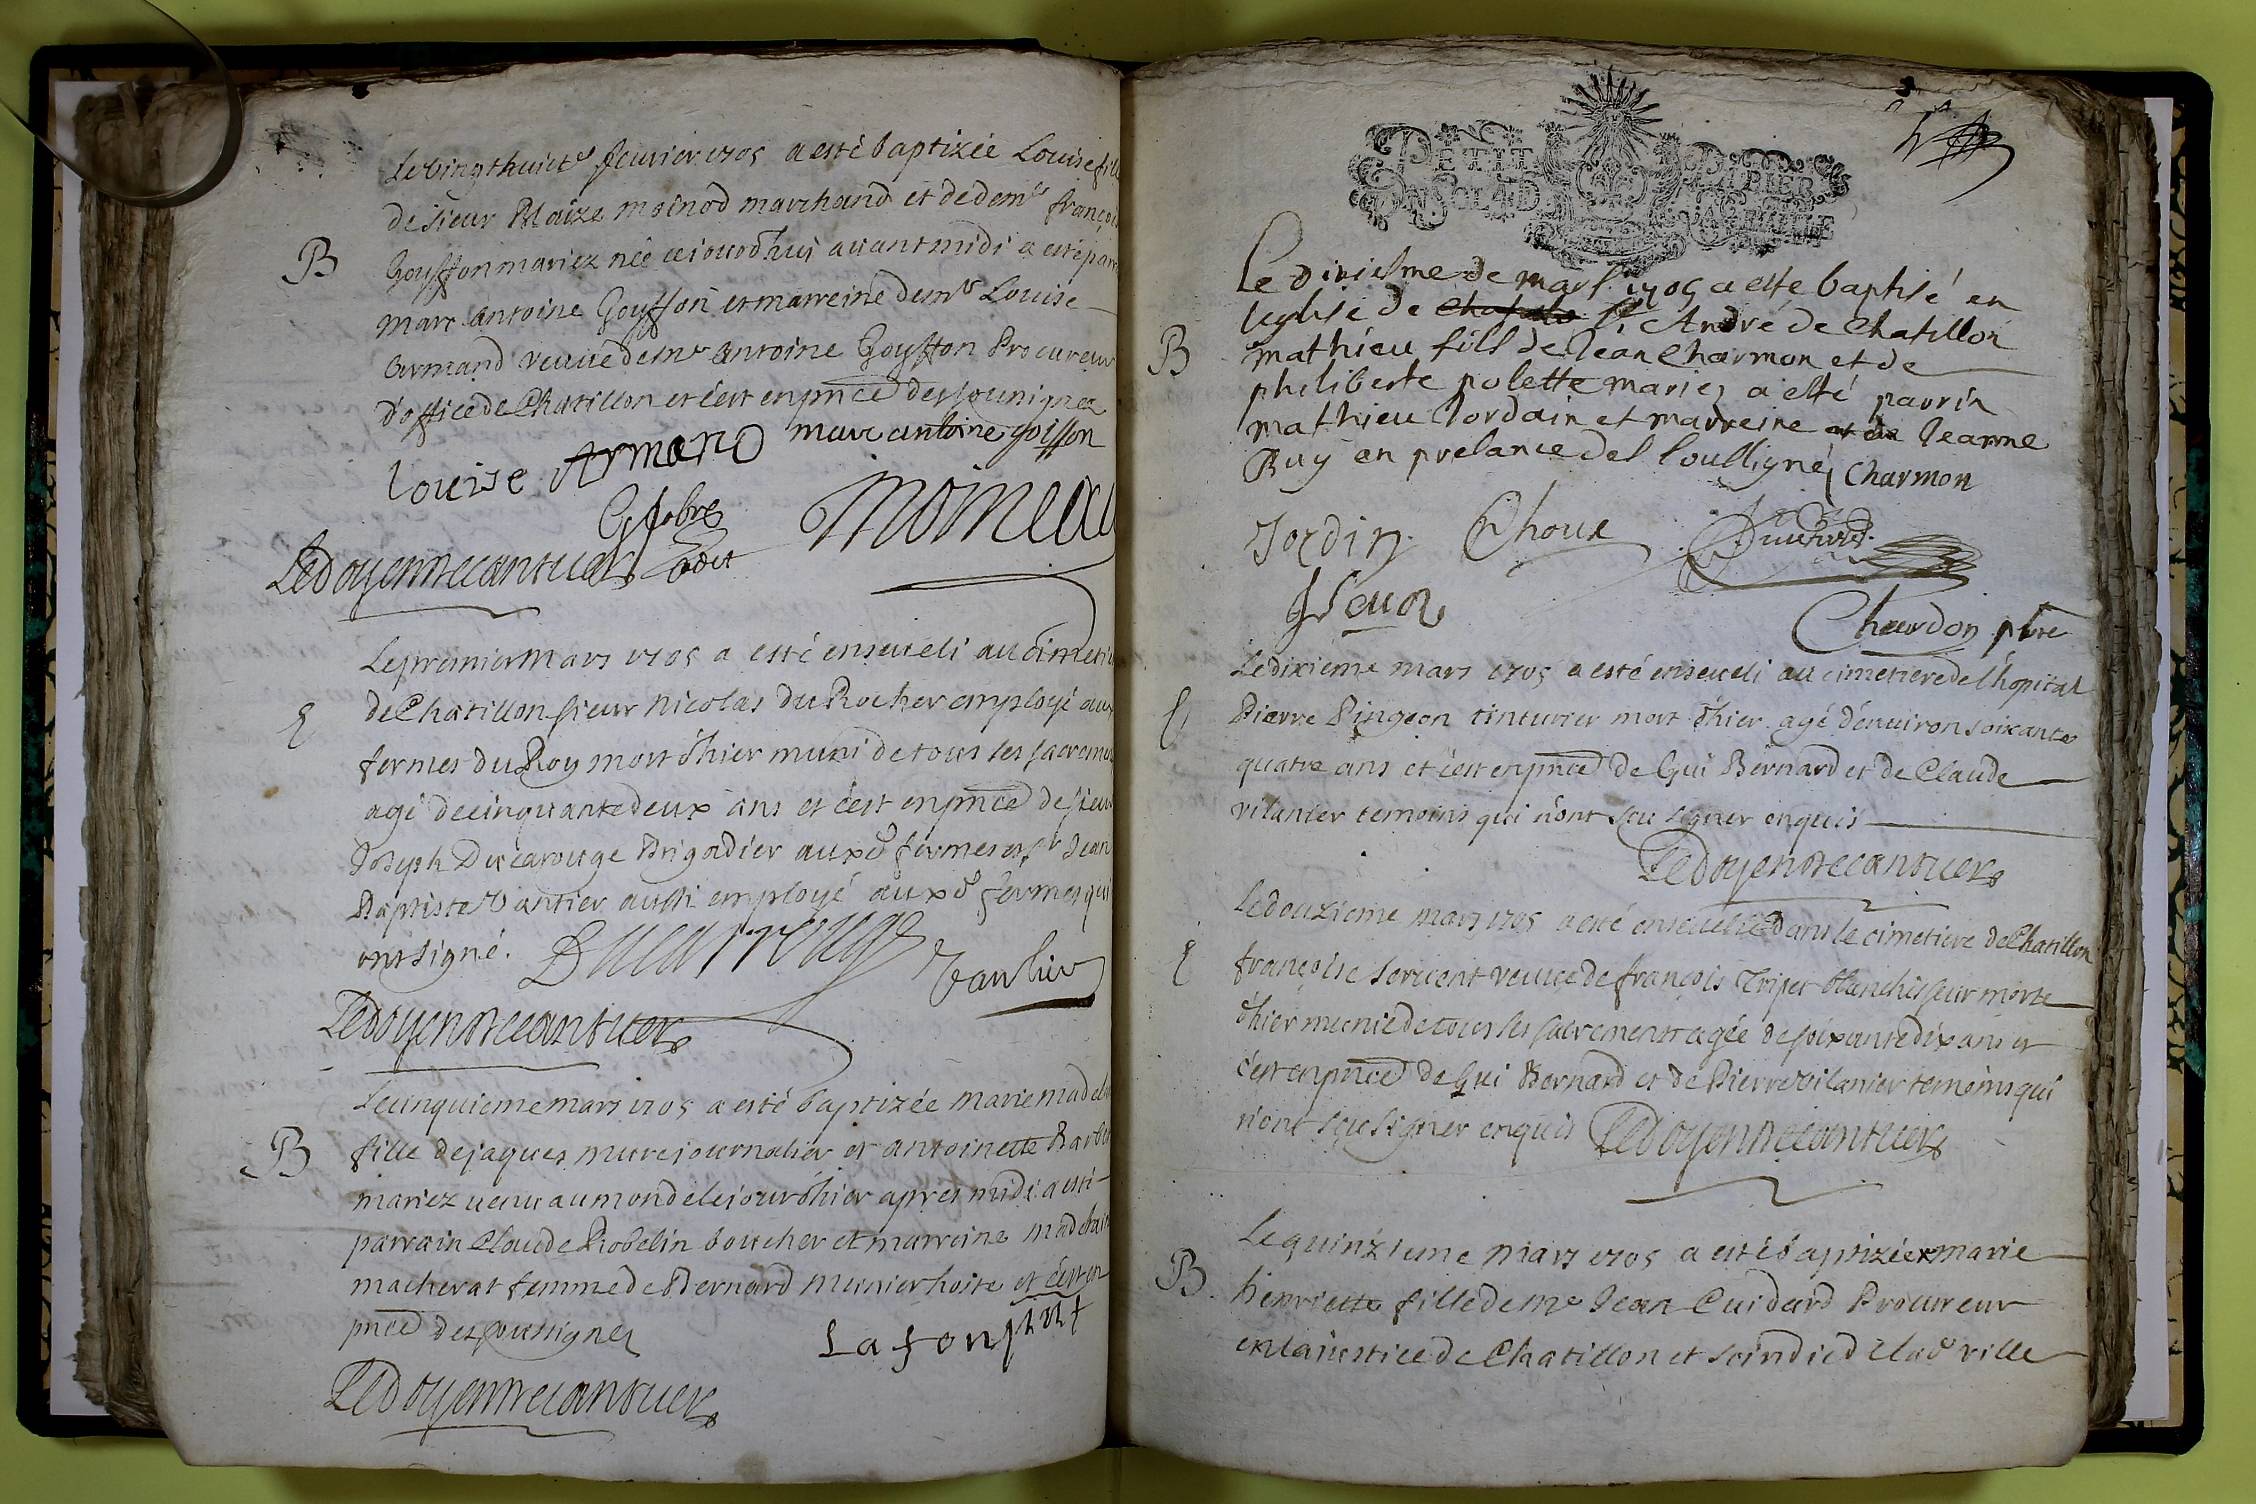 Le vingthuict.e feuvrier 1705 a esté baptizée Louise fille
de sieur Blaize moinod marchand et de dem.lle françoise
B
Goyffon mariez née ce jourdhuy avant midi a esté parrein
Marc Antoine Goyffon et marreine dem.lle Louise
Armand veuve de m.e Antoine Goyffon Procureur
d'office de Chatillon et c'est en pnce des sousignez
Louise Armand marc antoine goiffon
Moineau
Ledoyen et recantuer
Le premier Mars 1705 a esté enseveli au cimetiere
E
de Chatillon sieur Nicolas Du Rocher employé aux
fermes du Roy mort d'hier muni de tous les sacremens
agé de cinquante deux ans et c'est en pnce de sieur
Joseph Ducarouge Brigadier aux d. fermes et s.r Jean
Baptiste Vantier aussi employé aux d. fermes qui
ont signé. Ducarrouge
Ledoyen et recantuer
Le cinquieme mars 1705 a esté baptizée Marie madel
B
fille de jaques mure journalier et antoinette Barb
mariez venu au monde le jour d'hier apres midi a esté
parrain Claude Robelin boucher et marreine madelaine
macherat femme de Bernard Munier hoste et c'est en
pnce des sousignez
Lafont
Ledoyen et recantuer
PETIT PAPIER
Le dixielme de mars 1705 a este baptisé en
leglise de St André de Chatillon
B
mathieu fils de Jean Charmon et de
philiberte polette mariez a esté parrin
mathieu Jordain et marreine Jeanne
Buy en presance des soussignéz Charmon
Jordin Choux
Chardon ptre
Le dixieme mars 1705 a esté enseveli au cimetiere de l'hopital
E
Pierre Pingeon tinturier mort d'hier agé d'environ soixante
quatre ans et c'est en pnce de Gui Bernard et de Claude
vilanier temoins qui n'ont sçu signer enquis
Ledoyen et recantuer
Le douzieme mars 1705 a esté ensevelie dans le cimetiere de Chatillon
E
françoise servent veuve de françois Tripet blanchisseur morte
d'hier munie de tous les sacremens agée de soixante dix ans et
c'est en pnce de Gui Bernard et de Pierre vilanier temoins qui
n'ont sçu signer enquis Ledoyen et recantuer
Le quinzieme mars 1705 a esté baptizée marie
B
henriette fille de m.e Jean Cuidard Procureur
en la justice de Chatillon et scindic de la d. ville